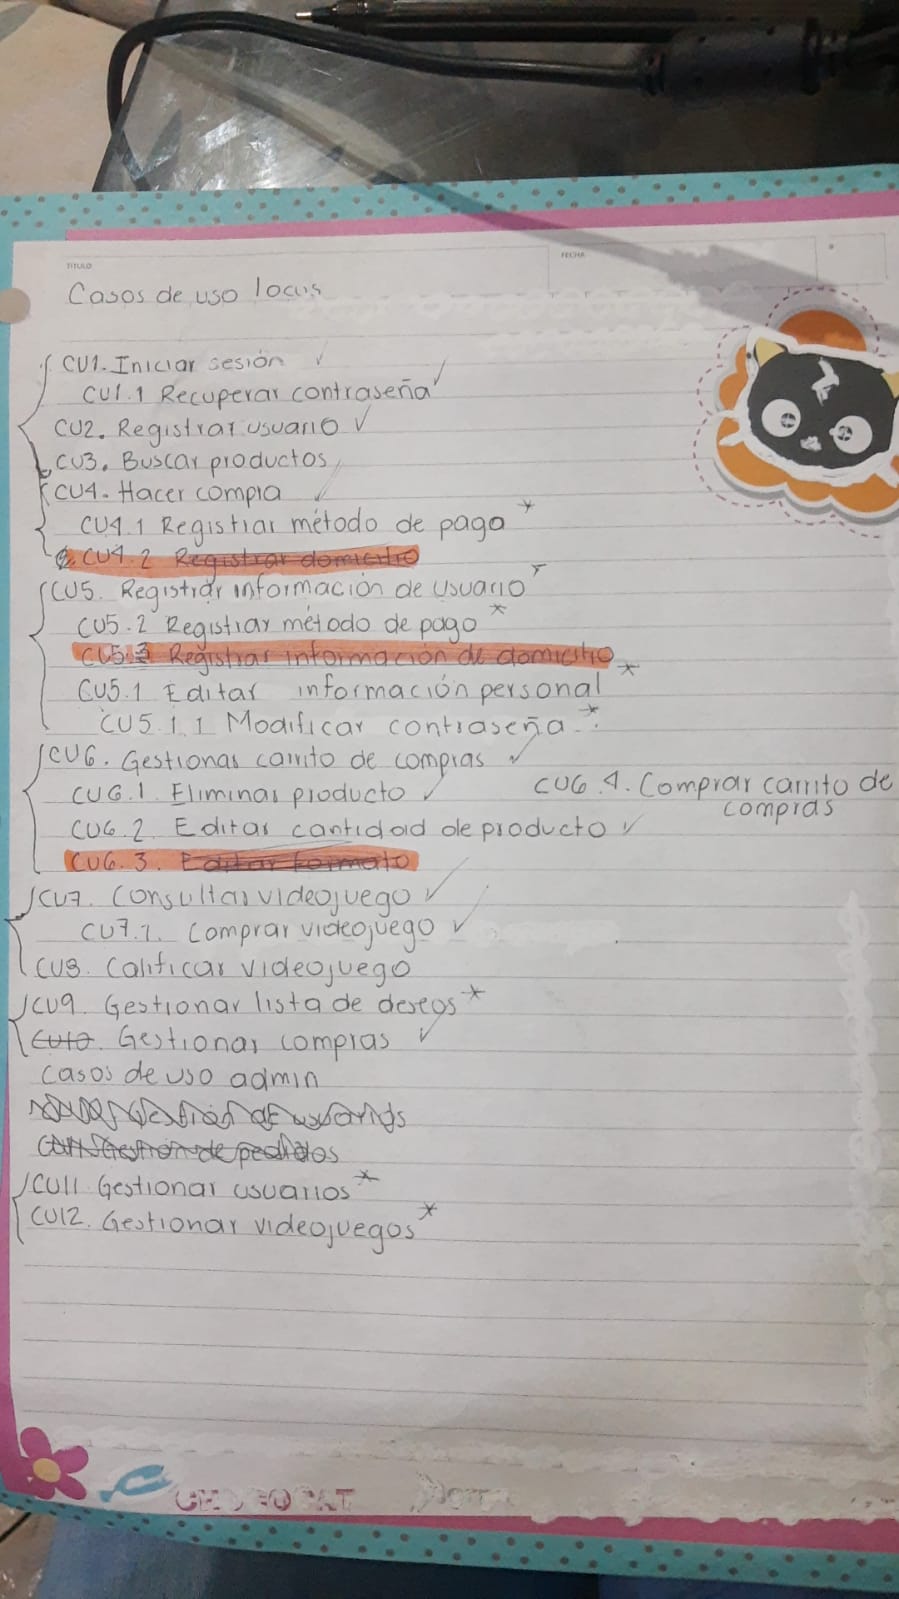 TITULO
FECHA
Casos de uso locus
CU1. Iniciar sesión ✓
CU1.1 Recuperar contraseña ✓
CU2. Registrar usuario ✓
CU3. Buscar productos
CU4. Hacer compra ✓
CU4.1 Registrar método de pago *
CU4.2 Registrar domicilio
CU5. Registrar información de usuario *
CU5.2 Registrar método de pago *
CU5.3 Registrar información de domicilio
CU5.1 Editar información personal *
CU5.1.1 Modificar contraseña *
CU6. Gestionar carrito de compras ✓
CU6.1. Eliminar producto ✓
CU6.4. Comprar carrito de compras
CU6.2. Editar cantidad de producto ✓
CU6.3. Editar formato
CU7. Consultar videojuego ✓
CU7.1. Comprar videojuego ✓
CU8. Calificar videojuego
CU9. Gestionar lista de deseos *
CU10. Gestionar compras ✓
casos de uso admin
Gestión de usuarios
Gestión de pedidos
CU11 Gestionar usuarios *
CU12. Gestionar videojuegos *
CHOCOCAT